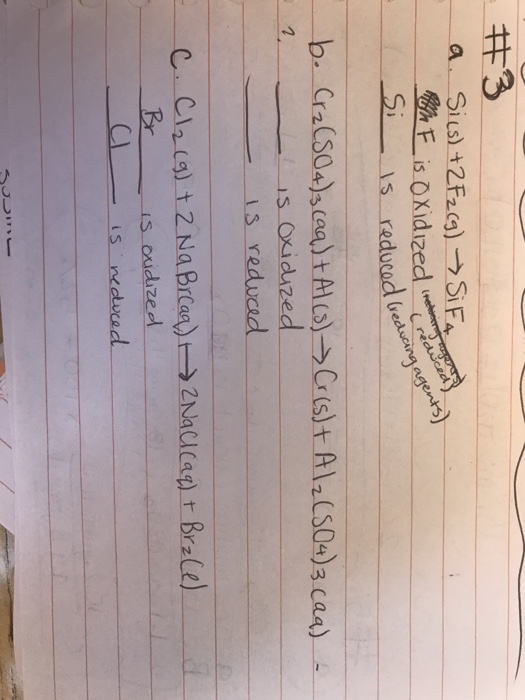 #3
a. Si(s) + 2F₂(g) → SiF₄
F is oxidized (reduced)
Si is reduced (reducing agents)
b. Cr₂(SO₄)₃(aq) + Al(s) → Cr(s) + Al₂(SO₄)₃(aq)
? ___ is oxidized
___ is reduced
C. Cl₂(g) + 2NaBr(aq) → 2NaCl(aq) + Br₂(l)
Br is oxidized
Cl is reduced